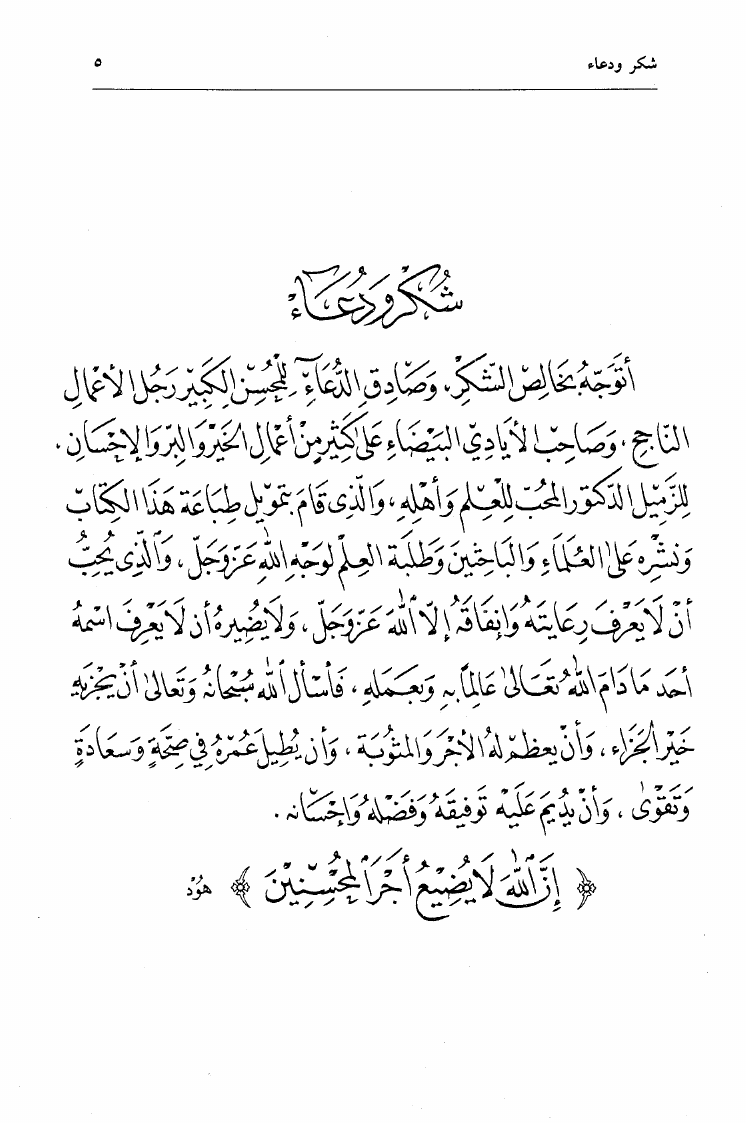 شكر ودعاء ٥
شُكْر وَدُعَاء
أتَوَجَّهُ بخَالِصِ الشّكْرِ، وَصَادِقِ الدُّعَاءِ لِلمُحْسِنِ الكَبِيْرِ رَجُلِ الأعْمَالِ
النَاجِحِ، وَصَاحِبِ الأيَادِيّ البَيْضَاءِ عَلىٰ كَثيْرٍ مِنْ أعْمَالِ الخَيْرِ وَالبِرِّ وَالإحْسَانِ،
لِلزَمِيْلِ الدّكتوْرِ المُحبِّ لِلْعِلْمِ وَأهْلِهِ، وَالَّذِي قَامَ بتَمْوِيْلِ طِبَاعَةِ هَذَا الكِتَابِ
وَنشْرِهِ عَلىٰ العُلَمَاءِ وَالبَاحِثِينَ وَطَلَبَةِ العِلْمِ لوَجْهِ اللهِ عَزّوَجَلّ، وَٱلَّذِي يُحِبُّ
أنْ لَا يَعْرِفَ رِعَايتَهُ وَإِنفَاقَهُ إِلّا ٱللهُ عَزَّوَجَلّ، وَلَا يَضُيرهُ أن لَا يَعْرِفَ اسْمَهُ
أحَد مَا دَامَ اللهُ تَعَالىٰ عَالِمًا بهِ وَبعَمَلهِ، فَأسْألُ ٱللهَ سُبْحَانَهُ وَتَعالىٰ أنْ يَجْزِيَهُ
خَيْرَ الجَزَاءِ، وَأنْ يعظمَ لهُ الأجْرَ وَالمثوُبَة، وَأن يُطِيلَ عُمْرَهُ فِي صِحَّةٍ وَسَعَادَةٍ
وَتَقْوَىٰ، وَأنْ يُدِيمَ عَلَيْهِ تَوفِيقَهُ وَفَضْلَهُ وَإحْسَانه.
﴿ إِنَّ ٱللَّهَ لَا يُضِيعُ أَجْرَ ٱلْمُحْسِنِينَ ﴾ هُوْد